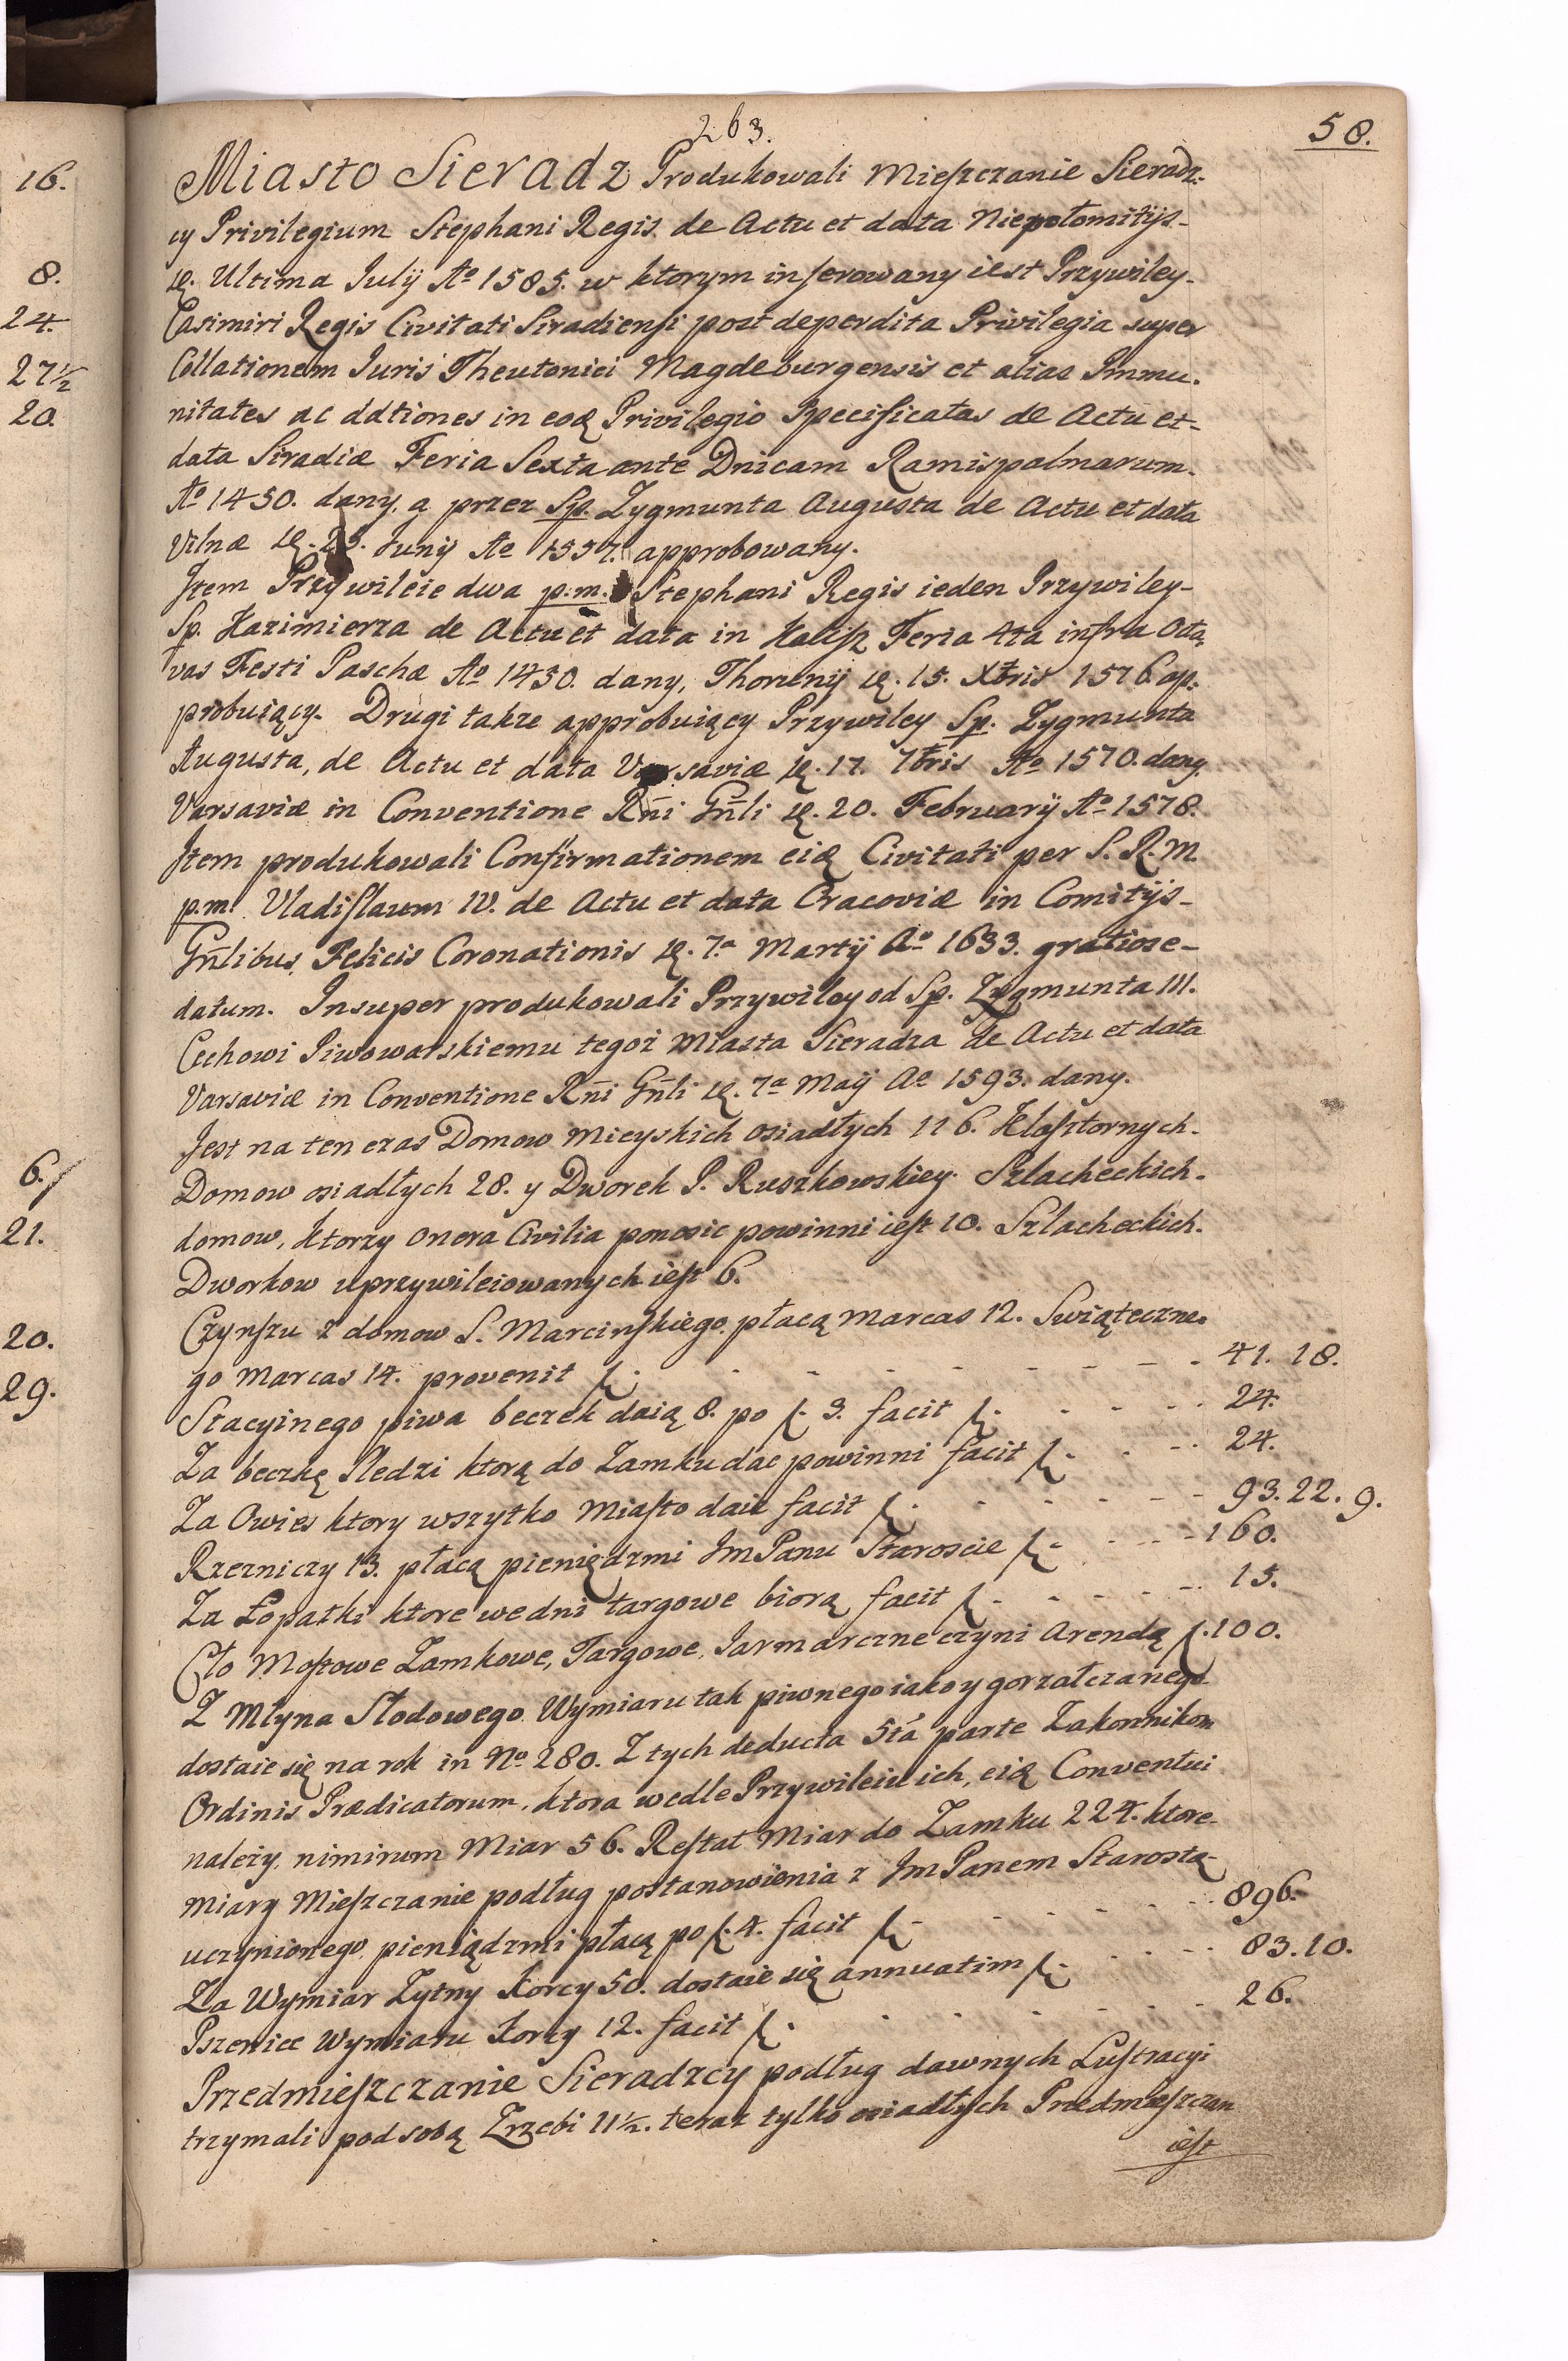 263.
58.
16.
8.
24.
27½
20.
6.
21.
20.
29.
Miasto Sieradz Produkowali Mieſzczanie Sieradz:
cy Privilegium Stephani Regis de Actu et data Niepołomitijs
Ultima Julij Aº 1585. w ktorym inſerowany iest Przywiley
Casimiri Regis Civitati Siradienſi post deperdita Privilegia super
Collationem Iuris Theutonici Magdeburgensis et alias Immu.
nitates ac ddtiones in eoq Privilegio specificatas de Actu et
data Siradiæ Feria Sexta ante Dnicam Ramispalmarum.
Aº 1450. dany, a przez Sp. Zygmunta Augusta de Actu et data
Vilnæ Junij Aº 1557. approbowany.
Item Przywileie dwa p.m. Stephani Regis ieden Przywiley
Sp. Kazimierza de Actu et data in Kaliſz Feria 4ta infra Octa
vas Festi Paschæ Aº 1430. dany, Thorunij 15. Xbris 1576 ap:
probuiący. Drugi także approbuiący Przywiley Sp. Zygmunta
Augusta, de Actu et data Varsaviæ 17. 7bris Aº 1570. dany
Varsaviæ in Conventione Rñi Gñli 20. February Aº 1578.
Item produkowali Confirmationem eiq Civitati per S. R. M.
p.m. Vladiſlaum IV. de Actu et data Cracoviæ in Comitijs
Gñlibus, Felicis Coronationis 7.a Martij Aº 1633. gratiose
datum. Insuper produkowali Przywiley od Sp. Zygmunta III.
Cechowi Piwowarskiemu tegoż Miasta Sieradza de Actu et data
Varsaviæ in Conventione Rñi Gñli 7a Maij Aº 1593. dany.
Jest na ten czas Domow Mieyskich osiadłych 116. Klaſztornych
Domow osiadłych 28. y Dworek P. Ruszkowskiey. Szlacheckich
domow, ktorzy onera Civilia ponosic powinni ieſt 10. Szlacheckich
Dworkow uprzywileiowanych ieſt 6.
Czynſzu z domow S. Marcinſkiego płacą marcas 12. Swiąteczne
go marcas 14. provenit f. 41. 18.
Stacyinego piwa beczek daią 8. po f. 3. facit f. 24.
Za beczkę Sledzi ktorą do Zamku dac powinni facit f. 24.
Za Owies ktory wszytko Miaſto daie facit f. 93. 22. 9.
Rzezniczy 13. płacą pieniędzmi Jm Panu Staroscie f. 160.
Za Łopatki ktore we dni targowe biorą facit f. 15.
Cło Moſtowe Zamkowe, Targowe, Jarmarczne czyni Arendą f. 100.
Z Młyna Słodowego Wymiaru tak piwnego iako y gorzałczanego
dostaie się na rok in Nº 280. Z tych deducta 5tá parte Zakonnikom
Ordinis Prædicatorum, ktora wedle Przywileiu ich, eiq Conventui
należy, nimirum Miar 56. Reſtat Miar do Zamku 224. ktore
miary Mieſzczanie podług postanowienia z Jm Panem Starostą
uczynionego, pieniądzmi płacą po f. 4. facit f. 896.
Za Wymiar Zytny Korcy 50. dostaie się annuatim f. 83. 10.
Pszenice Wymiaru korcy 12. facit f. 26.
Przedmieſzczanie Sieradzcy podług dawnych Luſtracyi
trzymali pod sobą Zrzebi 11½. teraz tylko osiadłych Przedmieſzczan
ieſt